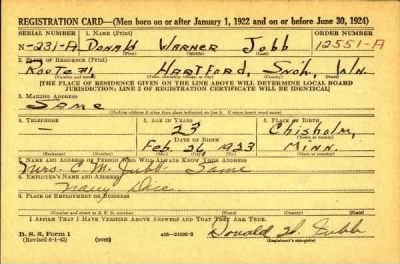 REGISTRATION CARD—(Men born on or after January 1, 1922 and on or before June 30, 1924)
SERIAL NUMBER 1. NAME (Print) ORDER NUMBER
N-231-A Donald Warner Jubb 12551-A
(First) (Middle) (Last)
2. PLACE OF RESIDENCE (Print)
Route #1, Hartford, Snoh,
[THE PLACE OF RESIDENCE GIVEN ON THE LINE ABOVE WILL DETERMINE LOCAL BOARD
JURISDICTION; LINE 2 OF REGISTRATION CERTIFICATE WILL BE IDENTICAL]
3. MAILING ADDRESS
Same
4. TELEPHONE 5. AGE IN YEARS 6. PLACE OF BIRTH
— 23 Chisholm,
DATE OF BIRTH
Feb. 26, 1923 Minn.
7. NAME AND ADDRESS OF PERSON WHO WILL ALWAYS KNOW YOUR ADDRESS
Mrs. C. M. Jubb Same
8. EMPLOYER'S NAME AND ADDRESS
Navy Disc.
9. PLACE OF EMPLOYMENT OR BUSINESS
I AFFIRM THAT I HAVE VERIFIED ABOVE ANSWERS AND THAT THEY ARE TRUE.
D. S. S. Form 1
(Revised 6-1-42) (over)
Donald W. Jubb
(Registrant's signature)